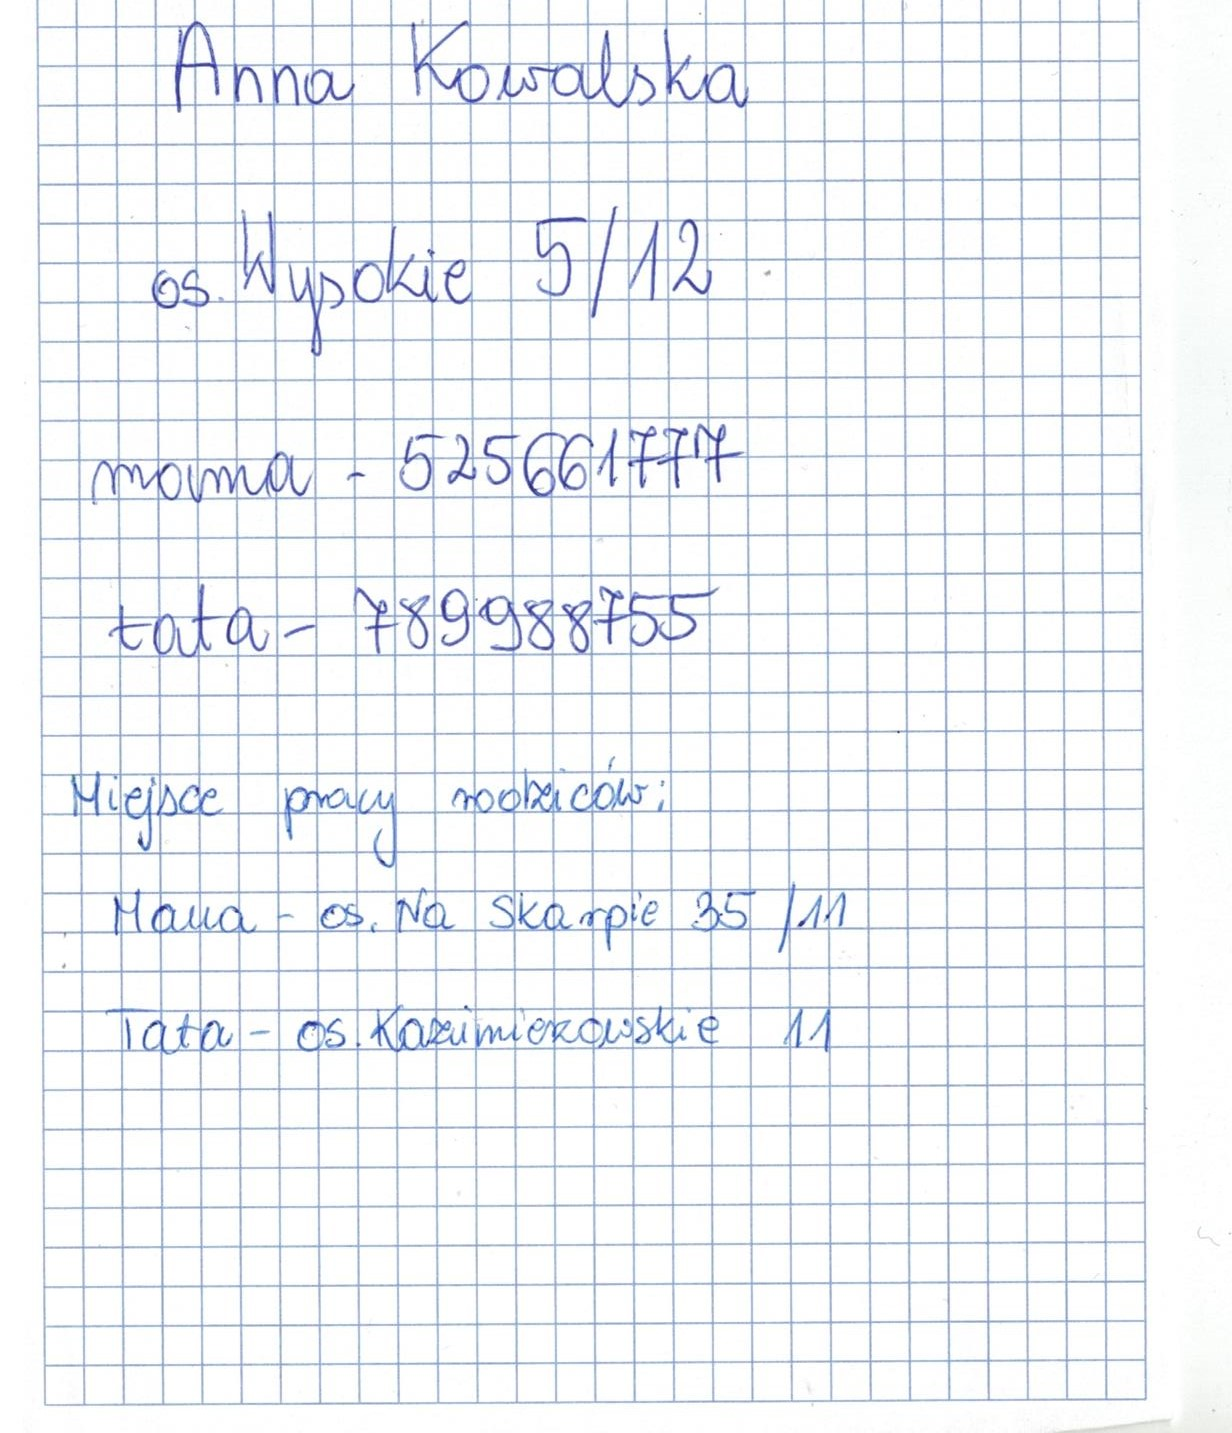 Anna Kowalska
os. Wysokie 5/12
mama - 525661777
tata - 789988755
Miejsce pracy rodziców:
Mama - os. Na Skarpie 35/11
Tata - os. Kazimierzowskie 11